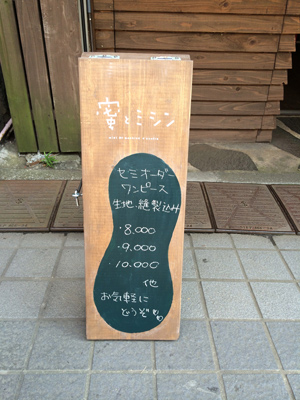 蜜とミシン
セミオーダー
ワンピース
生地、縫製込み
・8.000
・9.000
・10.000
他
お気軽に
どうぞ